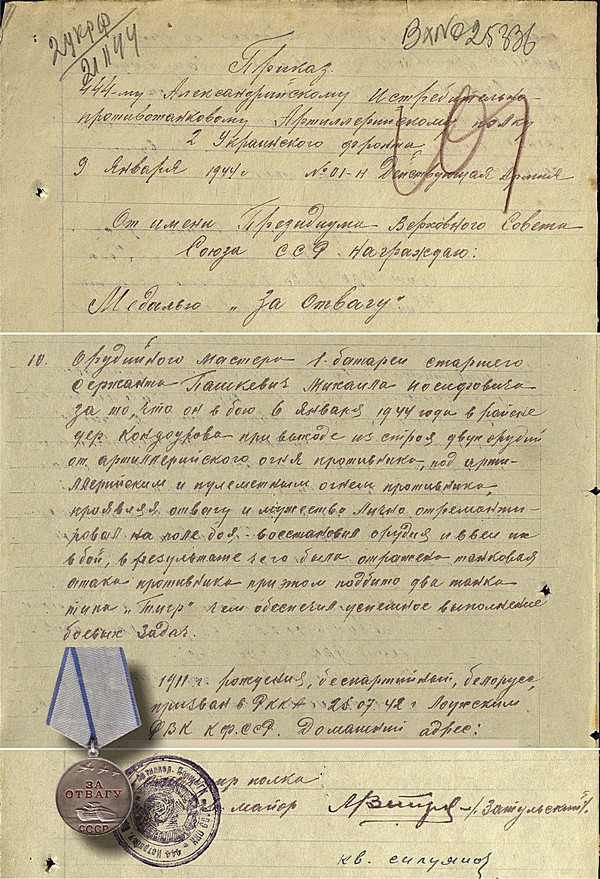 2 укрф
21 II 44
Вх№ 25336
Приказ
444-му Александрийскому Истребительно-
противотанковому Артиллерийскому полку
2 Украинского фронта
9 Января 1944 г №01-Н Действующая Армия
От имени Президиума Верховного Совета
Союза ССР Награждаю:
Медалью "За Отвагу".
10. Орудийного мастера 1-батареи старшего
сержанта Пашкевич Михаила Иосифовича
за то, что он в бою 6 Января 1944 года в районе
дер. при выходе из строя двух орудий
от артиллерийского огня противника, под арти-
ллерийским и пулеметным огнем противника,
проявляя отвагу и мужество лично отремонти-
ровал на поле боя - восстановил орудия и ввел их
в бой, в результате чего была отражена танковая
атака противника при этом подбито два танка
типа "Тигр" чем обеспечил успешное выполнение
боевых задач.
1911 г. рождения, беспартийный, белорусс,
призван в РККА 26.07.42 г
РВК КФССР. Домашний адрес:
полка
майор /Затульский/.
ЗА
ОТВАГУ
СССР